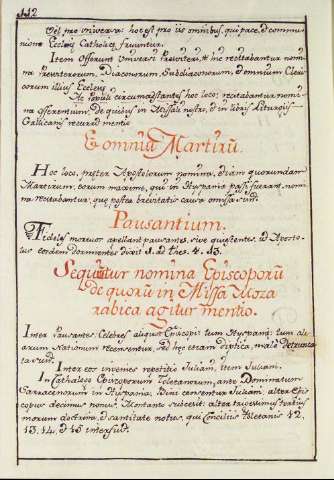 112
Vel pro universa: hoc est pro iis omnibus, qui pace, et communione
Ecclesie Catholice fruuntur.
Item Offerunt Universi Presviteri, et hic recitabantur nomina
Presviterorum, Diaconorum, Subdiaconorum, et omnium Clericorum
illius Ecclesie
Et Populi circumastantes hoc loco: recitabantur nomina
offerentium: de quibus in Missali nostro, et in libris Liturgiis
Gallicanis recurrit mentio
Et omniū Martirū.
Hoc loco, preter Apostolorum nomina, etiam quorundam
Martirum, eorum maxime, qui in Hyspania passi fuerant, nomina
recitabantur, que postea brevitatis causa omissa sunt.
Pausantium.
Fideles mortuos apellant pausantes, sive quiescentes, ut Apostolus
eosdem dormientes dixit 1. ad Thes. 4. 13.
Sequūtur nomina Episcoporū
de quorū in Missa Moza
rabica agitur mentio.
Inter Pausantes. Celebres aliquot Episcopi, tum Hyspani: tum aliarum
Nationum recensentur, sed hec etiam diptica, male detruncata
sunt.
Inter eos invenies repetitio Juliani, item Juliani.
In Cathalogo Episcoporum Toletanorum, ante Dominatum
Sarracenorum in Hyspania, Bini censentur Juliani: alter Episcopus
decimus nonus Montano successit: alter trigessimus tertius
morum doctrina, et sanctitate notus, qui Conciliis toletanis 12.
13. 14. et 15 interfuit.